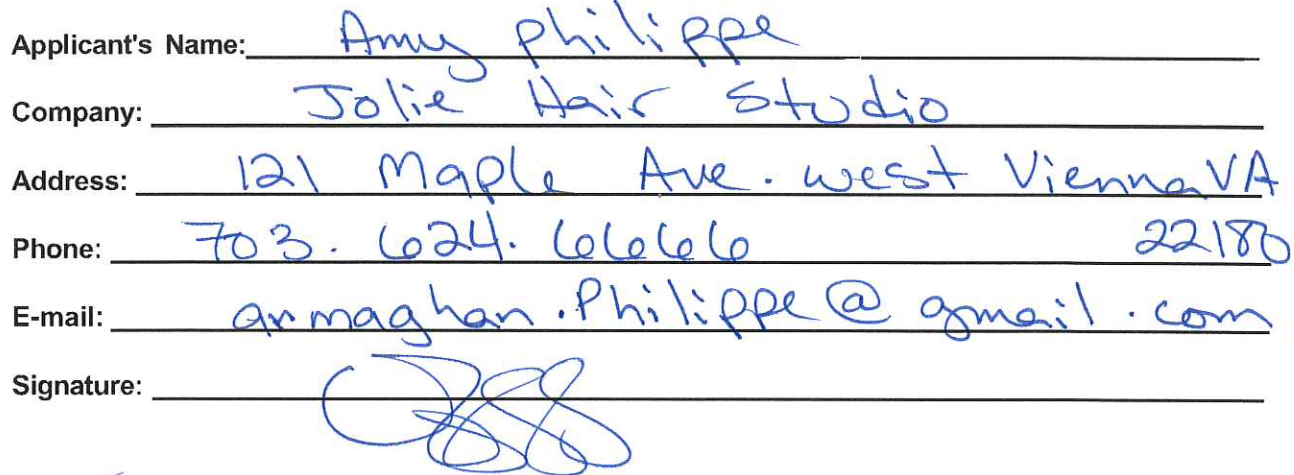 Applicant's Name: Amy Philippe
Company: Jolie Hair Studio
Address: 121 Maple Ave. west Vienna VA
Phone: 703. 624. 6666 22180
E-mail: armaghan.Philippe@gmail.com
Signature: